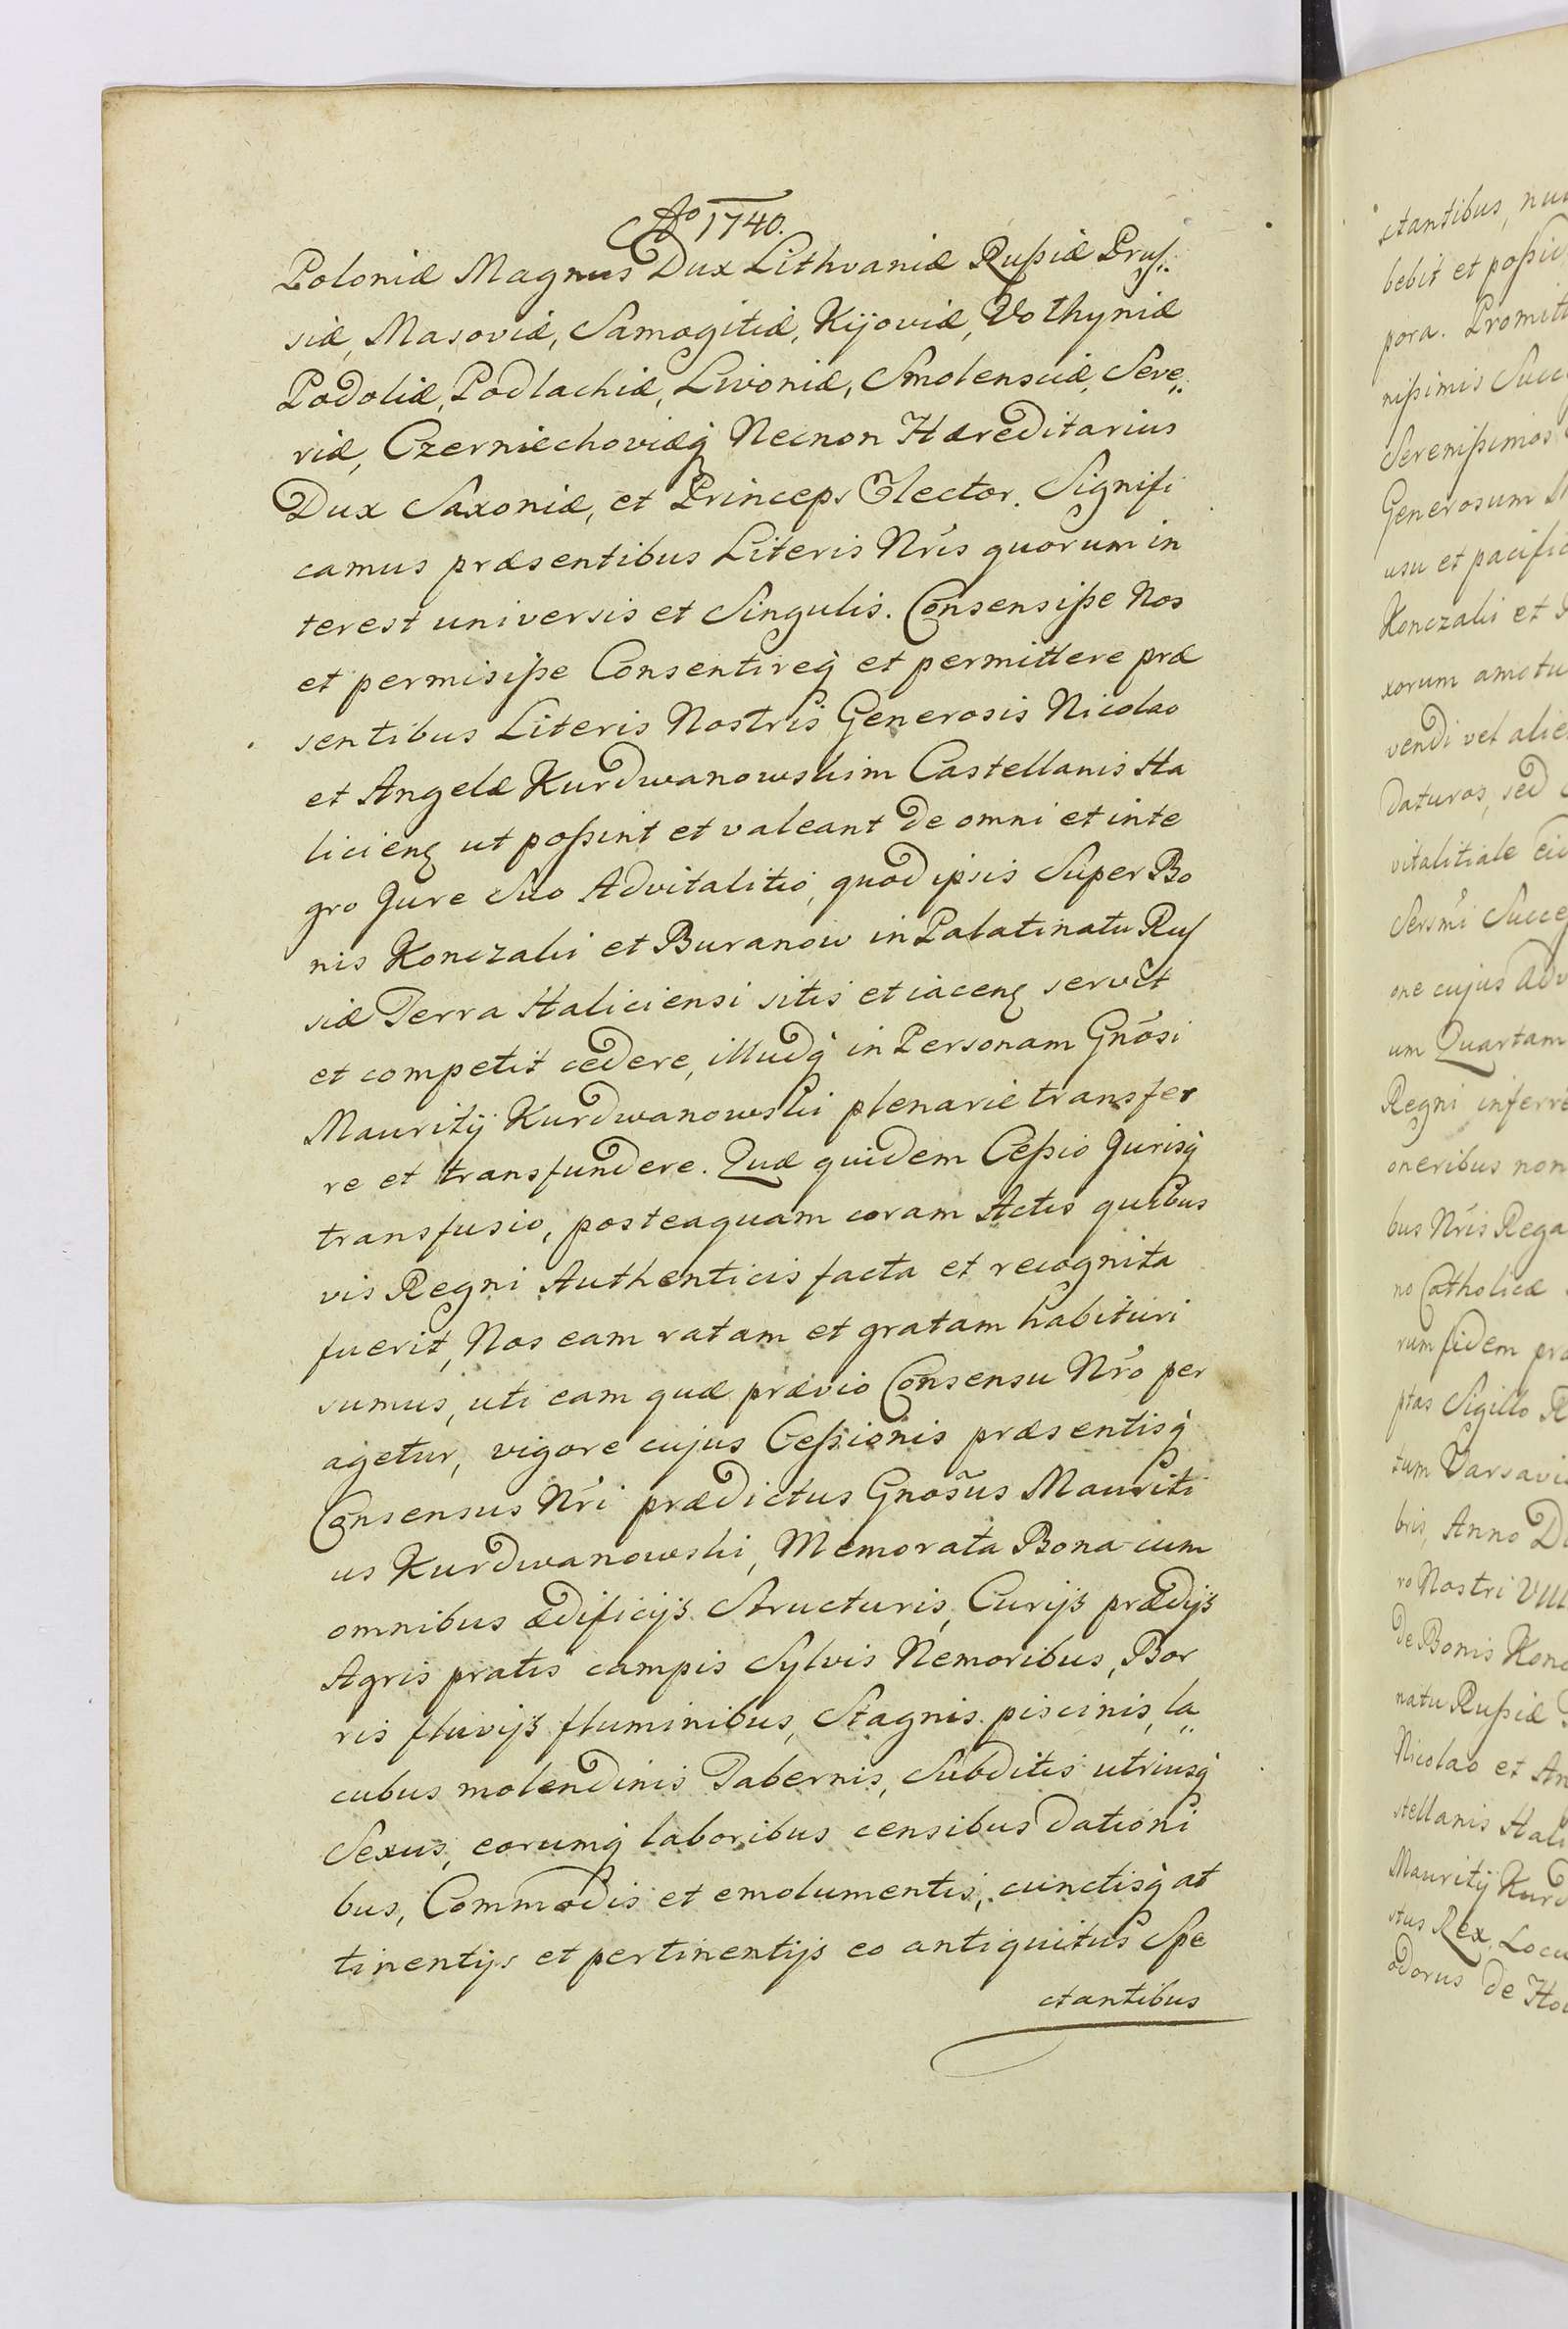 Aº 1740.
Poloniæ Magnus Dux Lithvaniæ Rußiæ Prus„
siæ, Masoviæ, Samogitiæ, Kijoviæ, Volhyniæ
Podoliæ, Podlachiæ, Livoniæ, Smolensciæ, Seve„
riæ, Czerniechoviæq́ Necnon Hæreditarius
Dux Saxoniæ, et Princeps Elector. Signifi
camus præsentibus Literis Nr̃is quorum in
terest universis et Singulis. Consensiße Nos
et permisiße Consentireq́ et permittere præ
sentibus Literis Nostris Generosis Nicolao
et Angelæ Kurdwanowskim Castellanis Ha
licienę ut poßint et valeant de omni et inte
gro Jure Suo Advitalitio, quod ipsis Super Bo
nis Konczaki et Buranow in Palatinatu Rus
siæ Terra Haliciensi sitis et iacenę servit
et competit cedere, illudq́ in Personam Gnõsi
Mauritij Kurdwanowski plenarie transfer
re et transfundere. Quæ quidem Ceßio Jurisq́
transfusio, posteaquam coram Actis quibus
vis Regni Authenticis facta et recognita
fuerit, Nos eam ratam et gratam habituri
sumus, uti eam quæ prævio Consensu Nr̃o per
agetur, vigore cujus Ceßionis præsentisq́
Consensus Nr̃i prædictus Gnõsus Mauriti
us Kurdwanowski, Memorata Bona cum
omnibus ædificijs Structuris, Curijs prædijs
Agris pratis campis Sylvis Nemoribus, Bor
ris fluvijs fluminibus, Stagnis piscinis, la„
cubus molendinis Tabernis, Subditis utriusq́
Sexus, eorumq́ laboribus censibus dationi
bus, Commodis et emolumentis, cunctisq́ at
tinentijs et pertinentijs eo antiquitus Spe
ctantibus
ctantibus,
bebit et poßid
pora. Promit
nißimis Succ
Serenißimos
Generosum
usu et pacific
Konczaki et
xorum amotu
vendi vel alie
daturos, sed
vitalitiale
Sersmi Succe
one cujus adv
um Quartam
Regni inferre
oneribus non
bus Nr̃is Rega
no Catholicæ
rum fidem præ
ptas Sigillo R
tum Varsavi
bris, Anno D
ro Nostri VIII
de Bonis Konc
natu Rußiæ
Nicolao et An
stellanis Hali
Mauritij Kurd
stus Rex. Locu
odorus de Ho